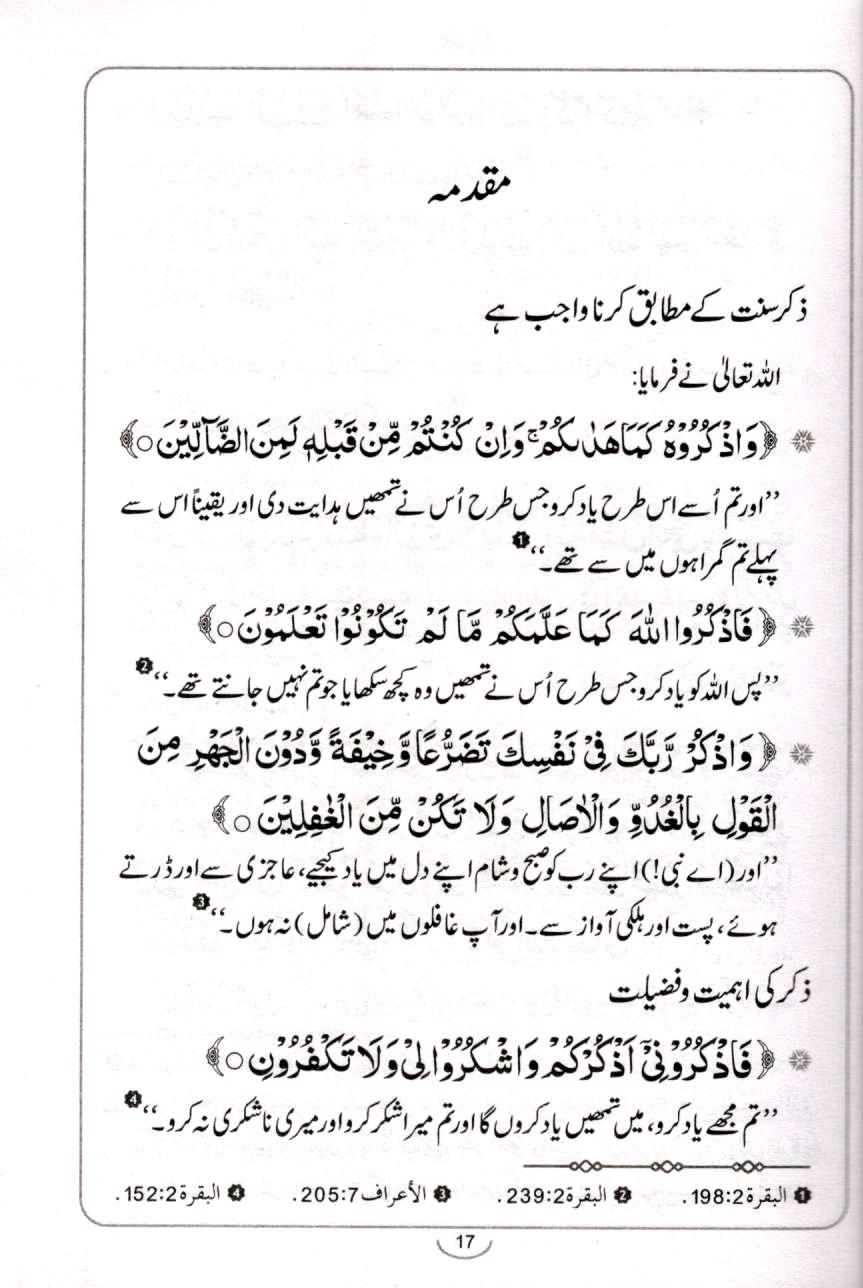 مقدمہ
ذکر سنت کے مطابق کرنا واجب ہے
اللہ تعالیٰ نے فرمایا:
﴿ وَاذْكُرُوْهُ كَمَا هَدٰىكُمْ ۚ وَاِنْ كُنْتُمْ مِّنْ قَبْلِهٖ لَمِنَ الضَّآلِّيْنَ ○ ﴾
’’اور تم اُسے اس طرح یاد کرو جس طرح اُس نے تمھیں ہدایت دی اور یقیناً اس سے
پہلے تم گمراہوں میں سے تھے۔‘‘ ❶
﴿ فَاذْكُرُوا اللّٰهَ كَمَا عَلَّمَكُمْ مَّا لَمْ تَكُوْنُوْا تَعْلَمُوْنَ ○ ﴾
’’پس اللہ کو یاد کرو جس طرح اُس نے تمھیں وہ کچھ سکھایا جو تم نہیں جانتے تھے۔‘‘ ❷
﴿ وَاذْكُرْ رَّبَّكَ فِيْ نَفْسِكَ تَضَرُّعًا وَّخِيْفَةً وَّدُوْنَ الْجَهْرِ مِنَ
الْقَوْلِ بِالْغُدُوِّ وَالْاٰصَالِ وَلَا تَكُنْ مِّنَ الْغٰفِلِيْنَ ○ ﴾
’’اور (اے نبی!) اپنے رب کو صبح و شام اپنے دل میں یاد کیجیے، عاجزی سے اور ڈرتے
ہوئے، پست اور ہلکی آواز سے۔ اور آپ غافلوں میں (شامل) نہ ہوں۔‘‘ ❸
ذکر کی اہمیت و فضیلت
﴿ فَاذْكُرُوْنِيْٓ اَذْكُرْكُمْ وَاشْكُرُوْا لِيْ وَلَا تَكْفُرُوْنِ ○ ﴾
’’تم مجھے یاد کرو، میں تمھیں یاد کروں گا اور تم میرا شکر کرو اور میری ناشکری نہ کرو۔‘‘ ❹
❶ البقرة 198:2. ❷ البقرة 239:2. ❸ الأعراف 205:7. ❹ البقرة 152:2.
17